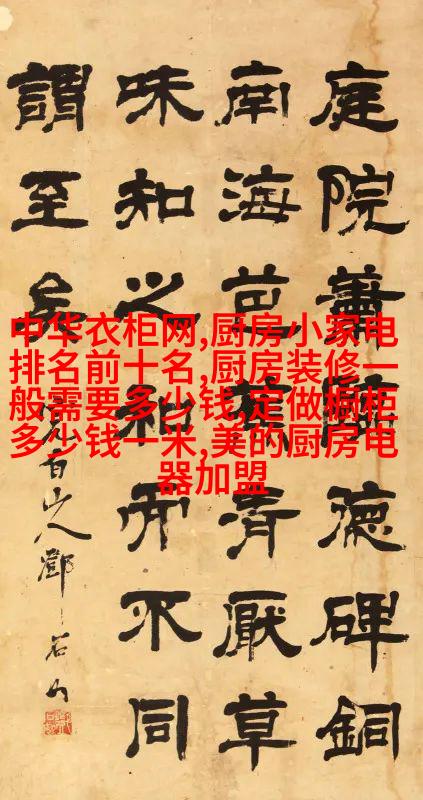 庭院蕭德碑銅
南海芭清厭草
味知之和而不同
謂至矣
完白山人鄧石如
中华衣柜网,厨房小家电
排名前十名,厨房装修一
般需要多少钱,定做橱柜
多少钱一米,美的厨房电
器加盟